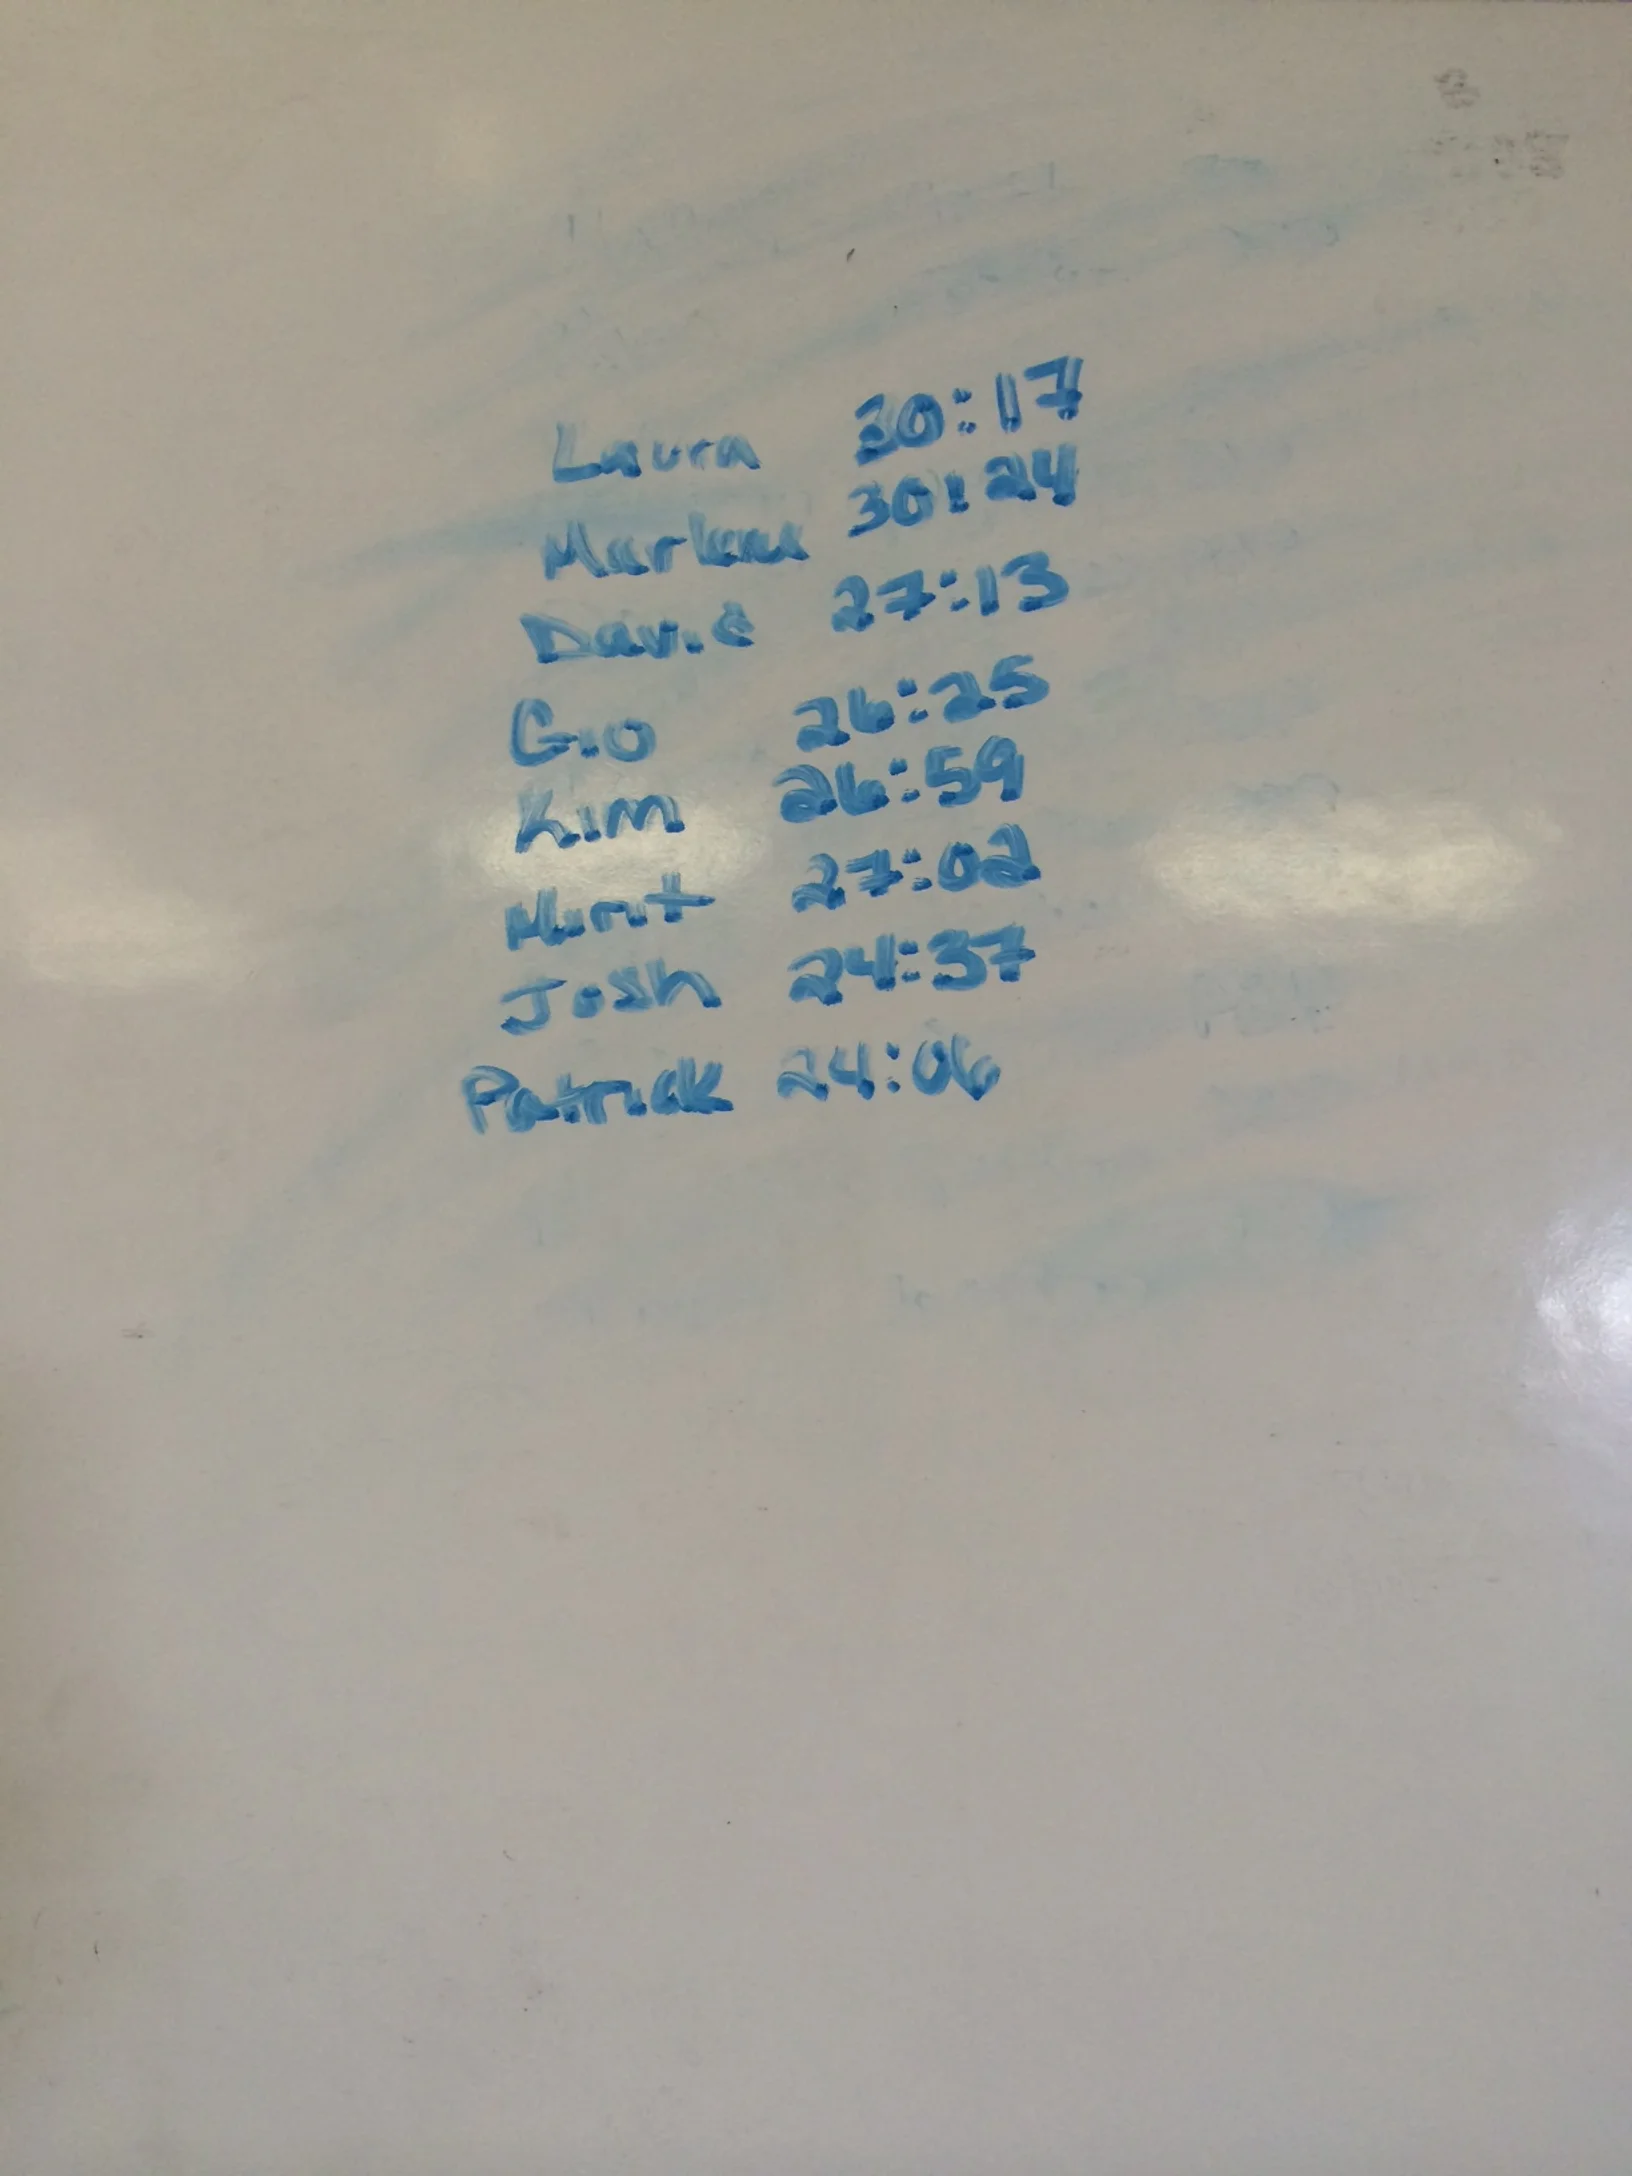 Laura 30:17
30:24
27:13
Gio 26:25
Kim 26:59
27:02
Josh 24:37
Patrick 24:06